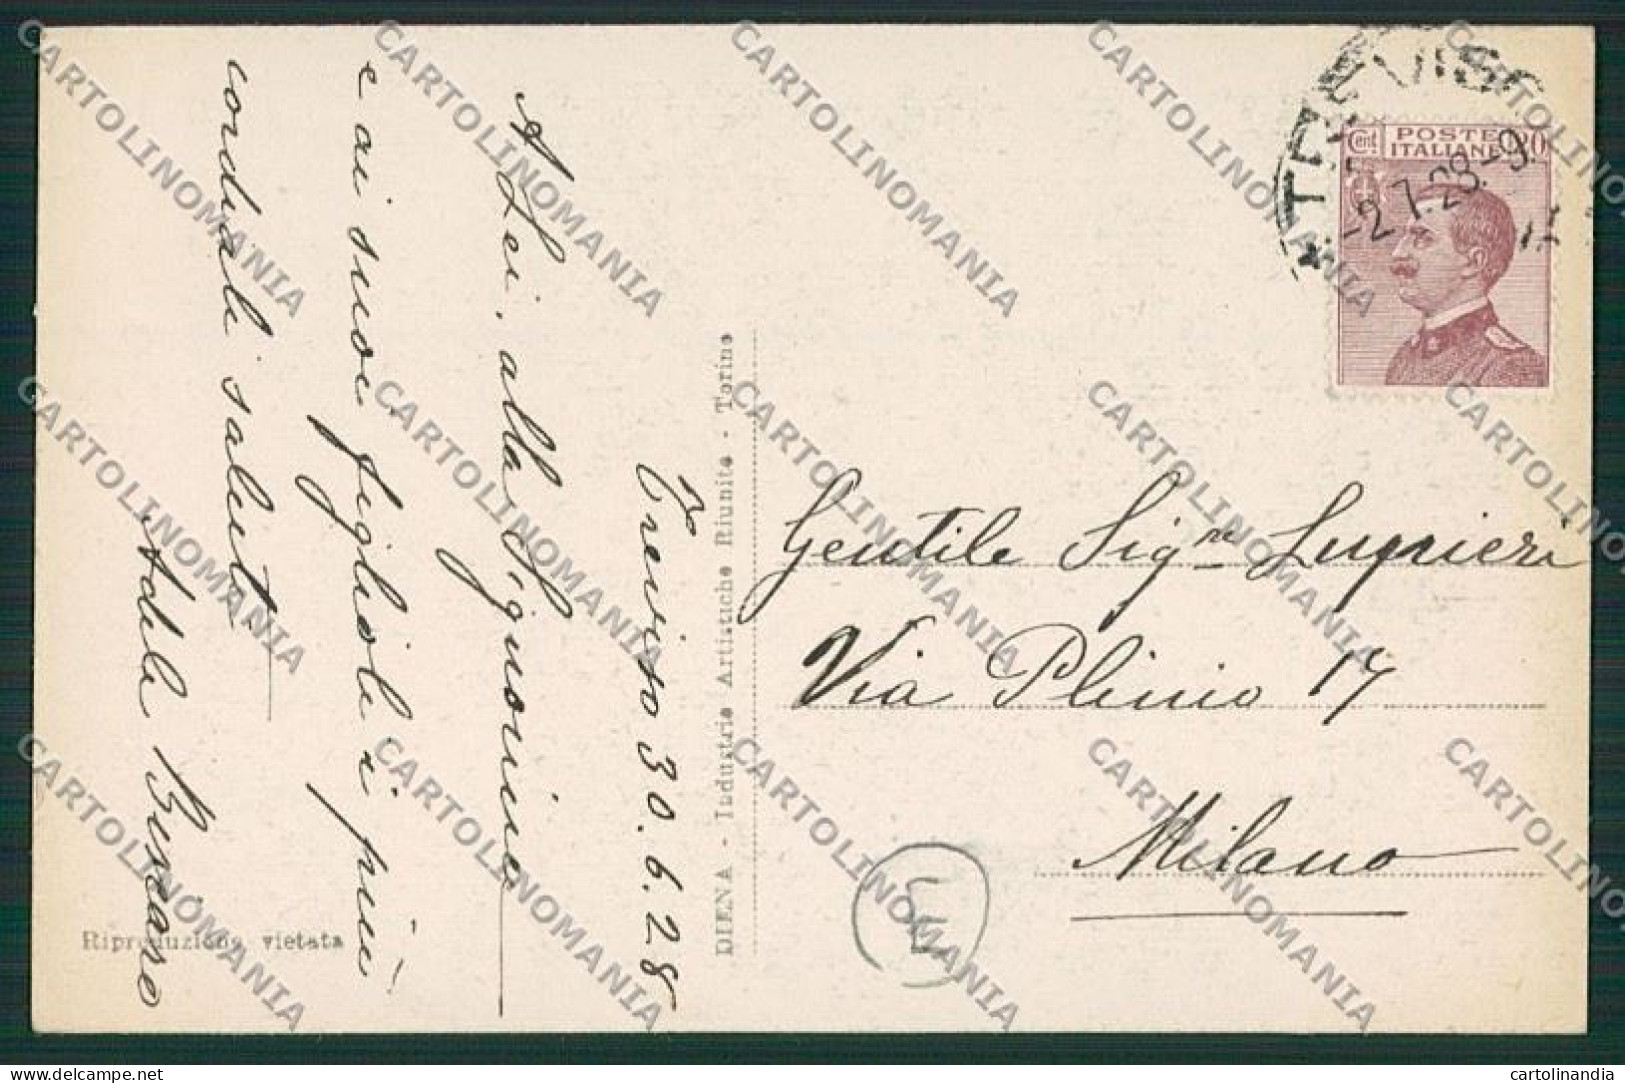 Treviso 30.6.28
A Lei, alla Signorina
e ai suoi figlioli i più
cordiali saluti
Adele
Gentile Sig.re Lupieri
Via Plinio 17
Milano
DIENA - Industrie Artistiche Riunite - Torino
Riproduzione vietata
TREVISO
-2.7.28.-9
Cent. POSTE ITALIANE 20
CARTOLINOMANIA
delcampe.net
cartolinandia